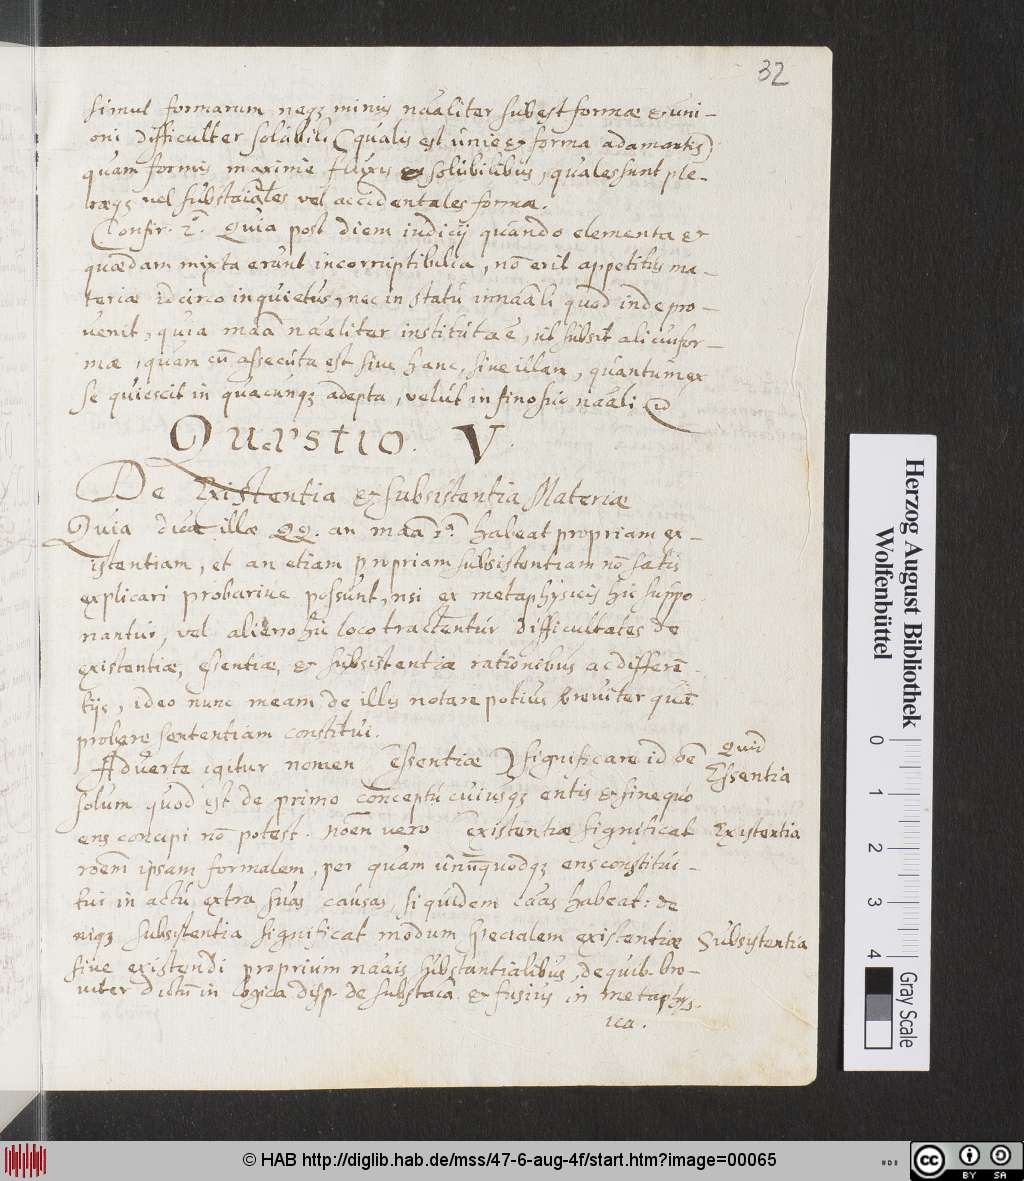 32
simul formarum neqꝫ minus nãaliter subest formæ & uni–
oni difficulter solubili (qualis est unie & forma adamantis)
quam formis maxime fluxis & solubilibus, quales sunt ple–
ræqꝫ vel substãiales vel accidentales formæ.
Confir. 2.ª Quia post diem iudicij quando elementa &
quædam mixta erunt incorruptibilia, nõ erit appetitus ma–
teriæ idcirco inquietus, nec in statu innãali quod inde pro–
venit, quia mãa nãaliter instituta ẽ, ut subsit alicui for–
mæ, quam cũ assecuta est sive hanc, sive illam, quantum ex
se quiescit in quacunqꝫ adepta, velut in fino suo nãali
Quæstio. V.
De Existentia & subsistentia Materiæ
Quia dictæ illæ QQ. an mãa 1.ª habeat propriam ex–
istentiam, et an etiam propriam subsistentiam nõ satis
explicari probarive possunt, nsi ex metaphysicis hic suppo
nantur, vel alieno hic loco tractentur difficultates de
existentiæ, esentiæ, & subsistentiæ rationibus ac differẽ–
tijs, ideo nunc meam de illis notare potius breviter quã
probare sententiam constitui.
Adverte igitur nomen Essentiæ significare id oẽ
solum quod est de primo conceptu cuiusqꝫ entis & sine quo
ens concipi nõ potest. noẽn vero existentiæ significat
roẽm ipsam formalem, per quam unũquodqꝫ ens constitu–
tui in actu extra suas causas, siquidem cãas habeat: de
niqꝫ subsistentia significat modum specialem existentiæ
sive existendi proprium nãais substantialibus, de quib. bre–
viter dictũ in logica disp. de substãia & fusius in metaphys.
ica.
Quid
Essentia
Existentia
Subsistentia
Herzog August Bibliothek
Wolfenbüttel
0 1 2 3 4
Gray Scale
© HAB http://diglib.hab.de/mss/47-6-aug-4f/start.htm?image=00065
cc BY SA